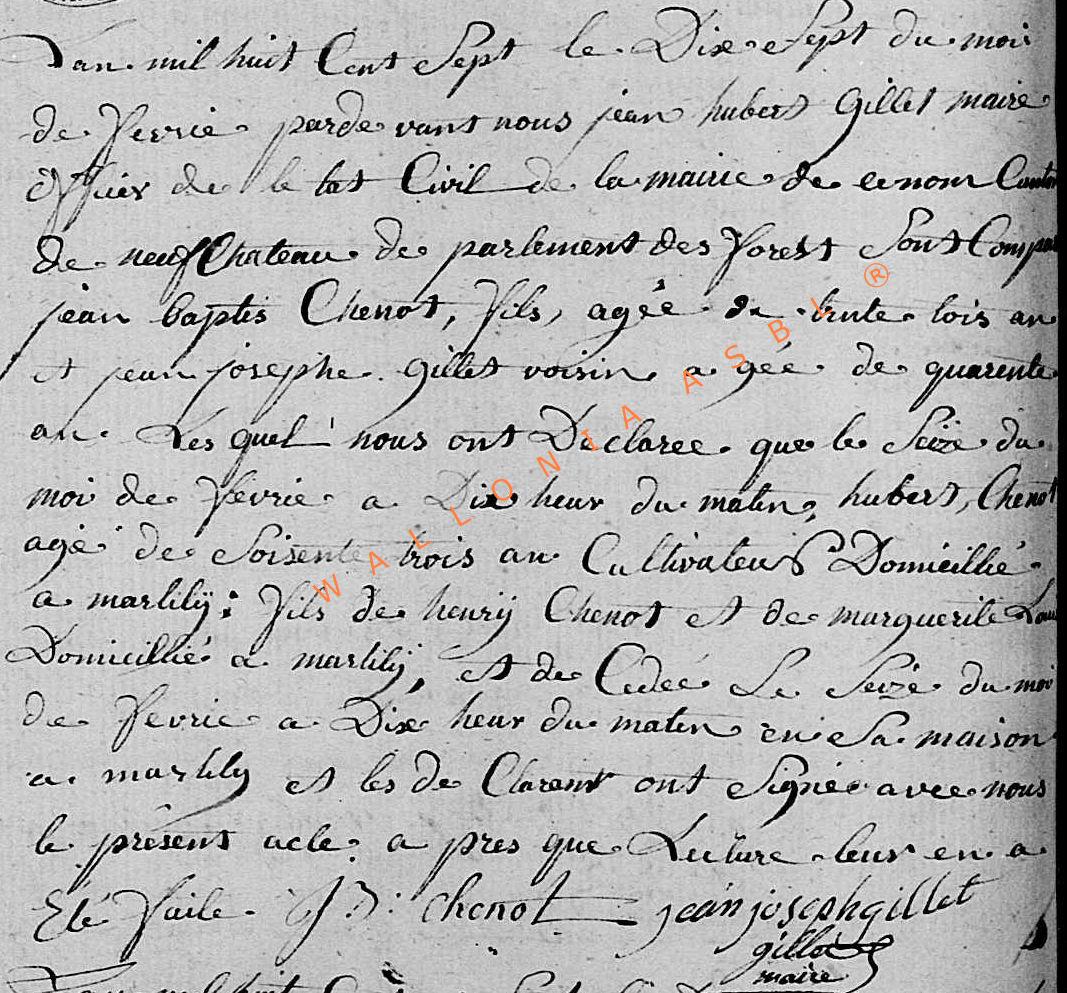 Lan mil huit Cent Sept le Dix Sept du moi
de fevrie parde vant nous jean hubert Gillet maire
officier de le tat Civil de la mairie de Canton
de neufChateau de parlement des forest Sont Compa
jean baptis Chenot, fils, agée de trente tois an
et jean josephe gillet voisin agée de quarente
an Les quel nous ont Declaree que le Seize du
moi de fevrie a Dix heur du matin, hubert, Chenot
agé de Soisente trois an Cultivateur Domicillié
a marlily; fils de henrÿ Chenot et de marguerite
Domicillié a marlilÿ, et de Cedée Le Seize du moi
de fevrie a Dix heur du matin en Sa maison
a marlily et les de Clarent ont Signée avec nous
le présent acte a pres que Lecture leur en a
Eté faite J: B: Chenot jeanjosephgillet
gillet
maire
WALLONIA ASBL ®